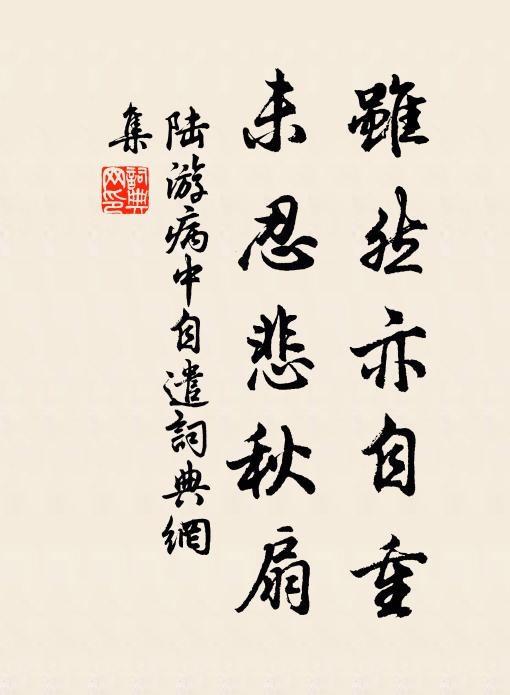 雖然亦自重
未忍悲秋扇
陆游病中自遣詞典網
集
詞典
网印